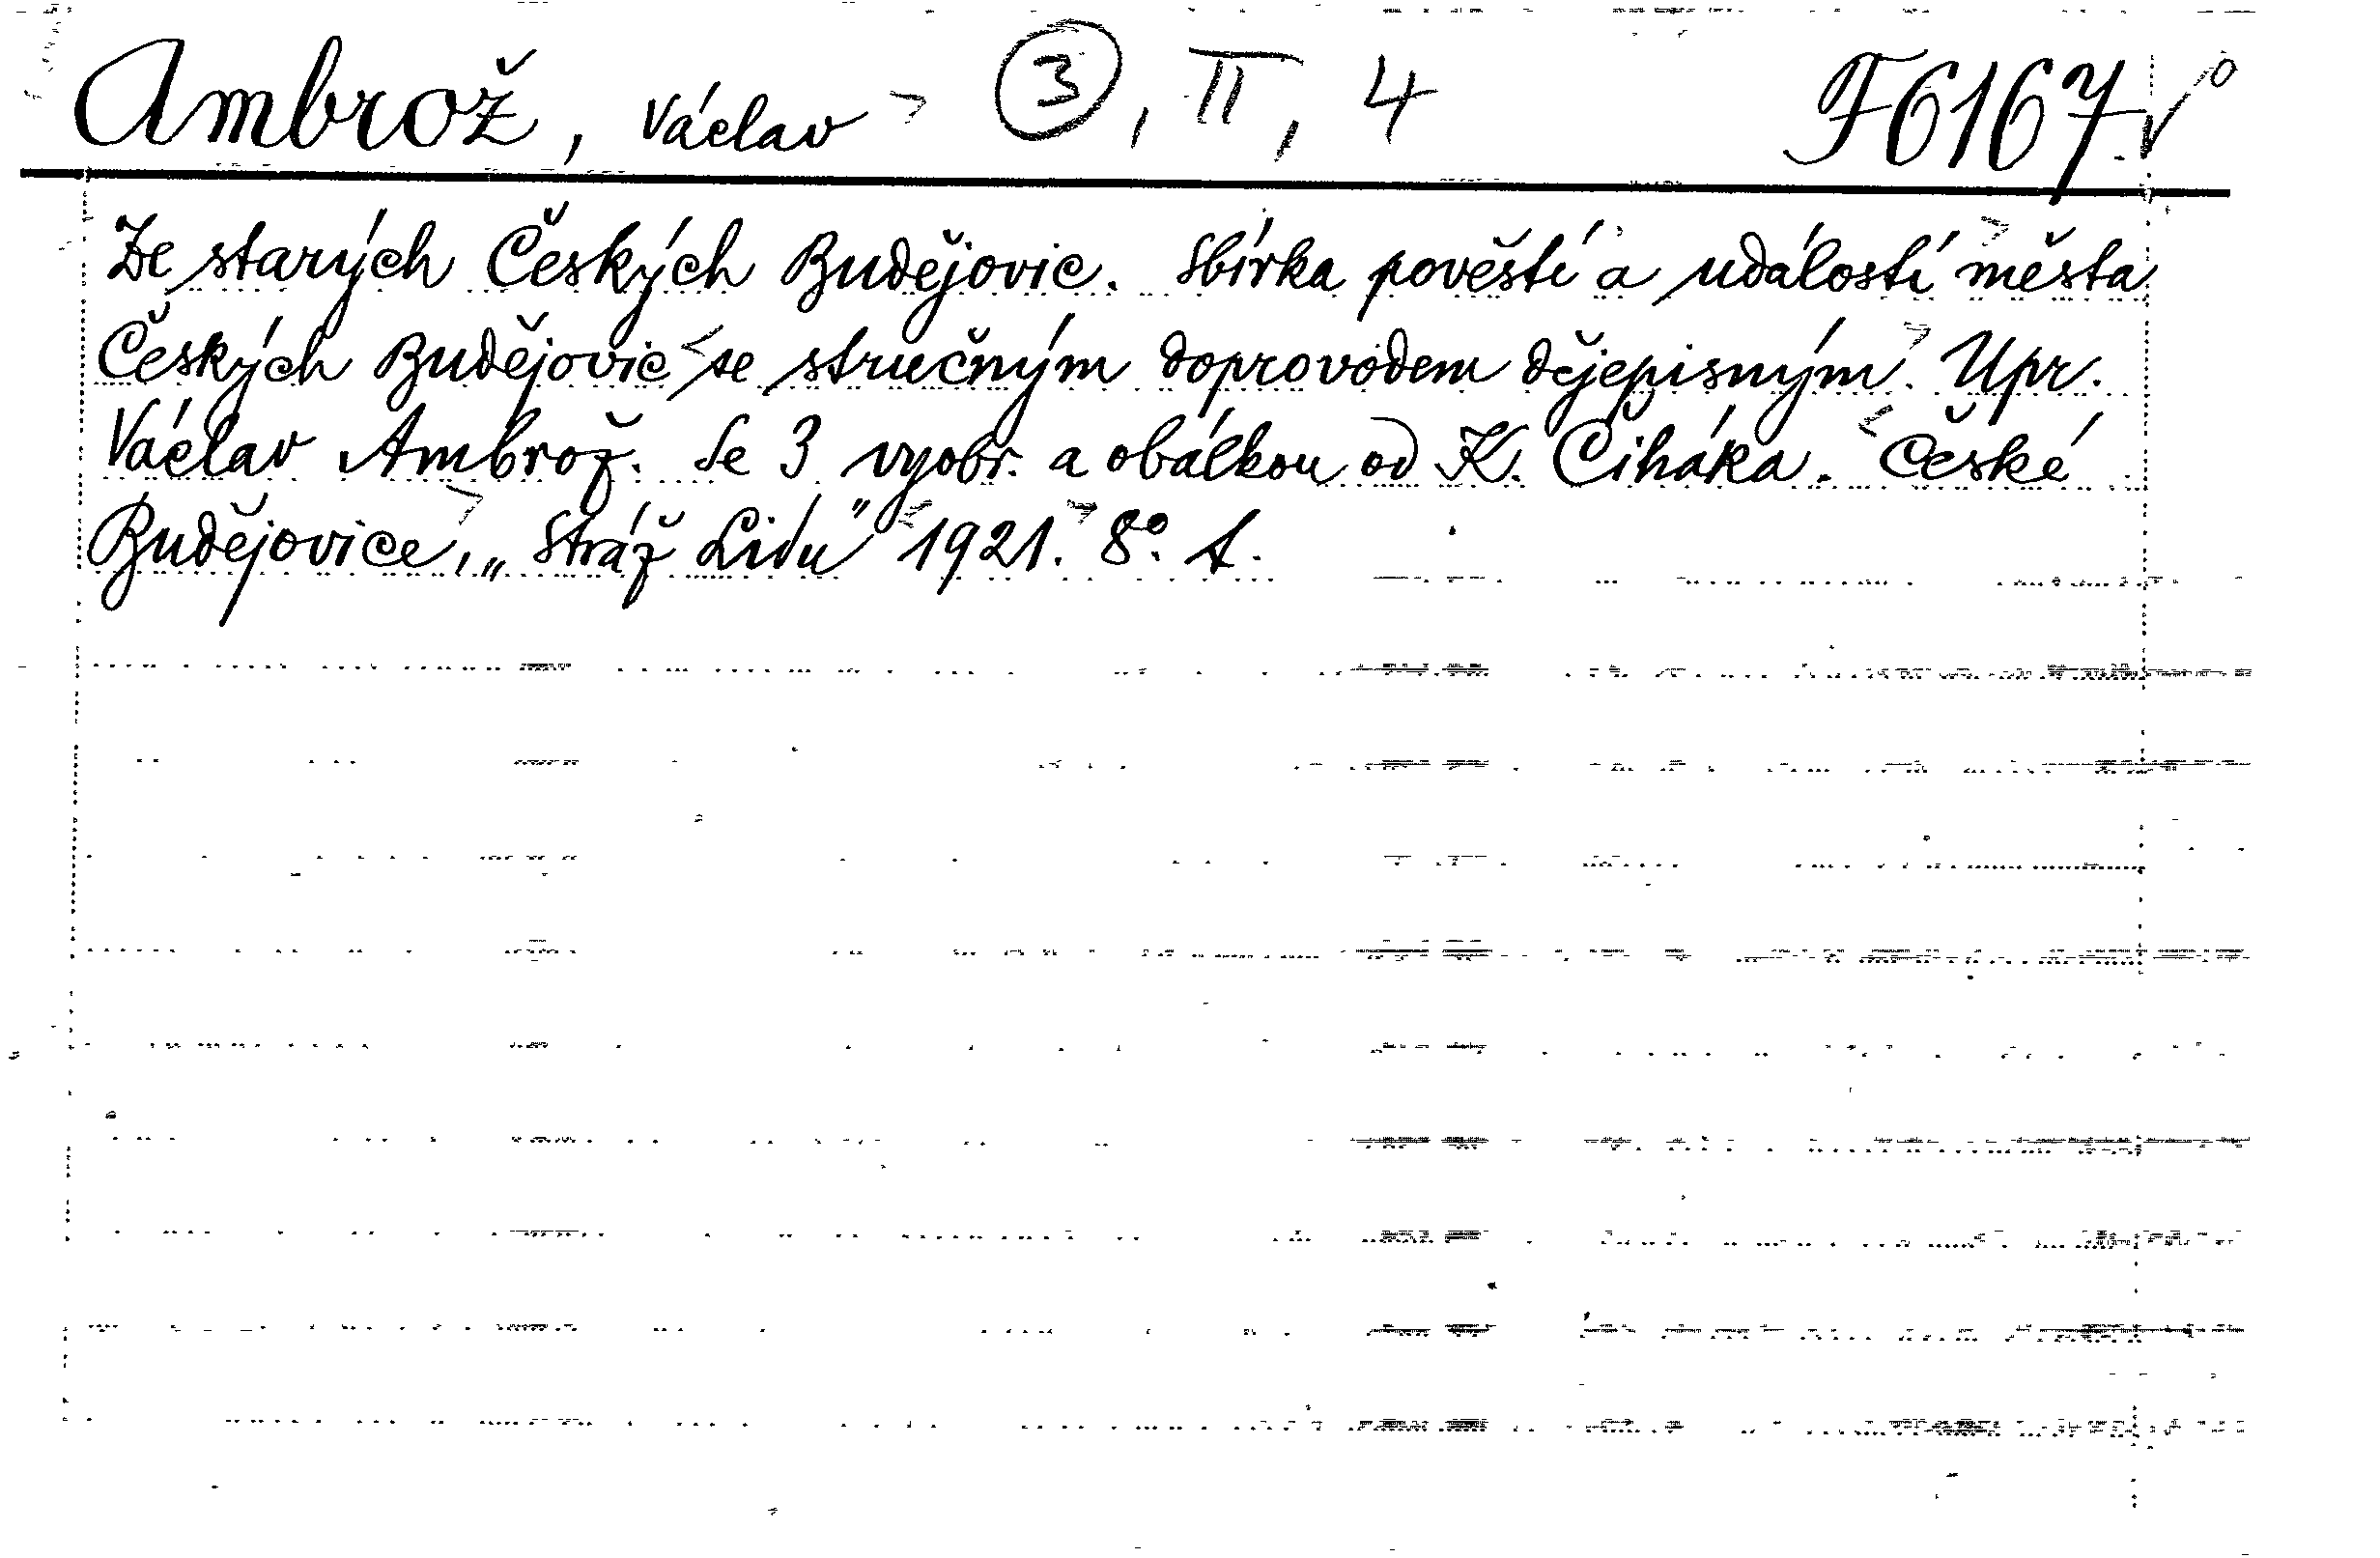 Ambrož, Václav ③, II, 4 F6167
Ze starých Českých Budějovic. Sbírka pověstí a událostí města
Českých Budějovic se stručným doprovodem dějepisným. Upr.
Václav Ambrož. Se 3 vyobr. a obálkou od K. Čiháka. České
Budějovice, „Stráž Lidu" 1921. 8°.